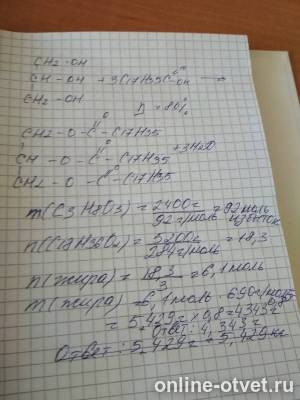 CH2-OH
CH-OH + 3C17H35C
O
OH
CH2-OH
η = 80%
O
CH2-O-C-C17H35
O
CH-O-C-C17H35 +3H2O
O
CH2-O-C-C17H35
m(C3H8O3) = 2400г
92г/моль
n(C18H36O2) = 5200г = 18,3
284г/моль
n(жира) = 18,3 = 6,1 моль
3
m(жира) = 6,1 моль · 690г/моль
= 5,429г × 0,8 = 4343г
Ответ: 4,343г
Ответ: 5,429г = 5,429кг
online-otvet.ru